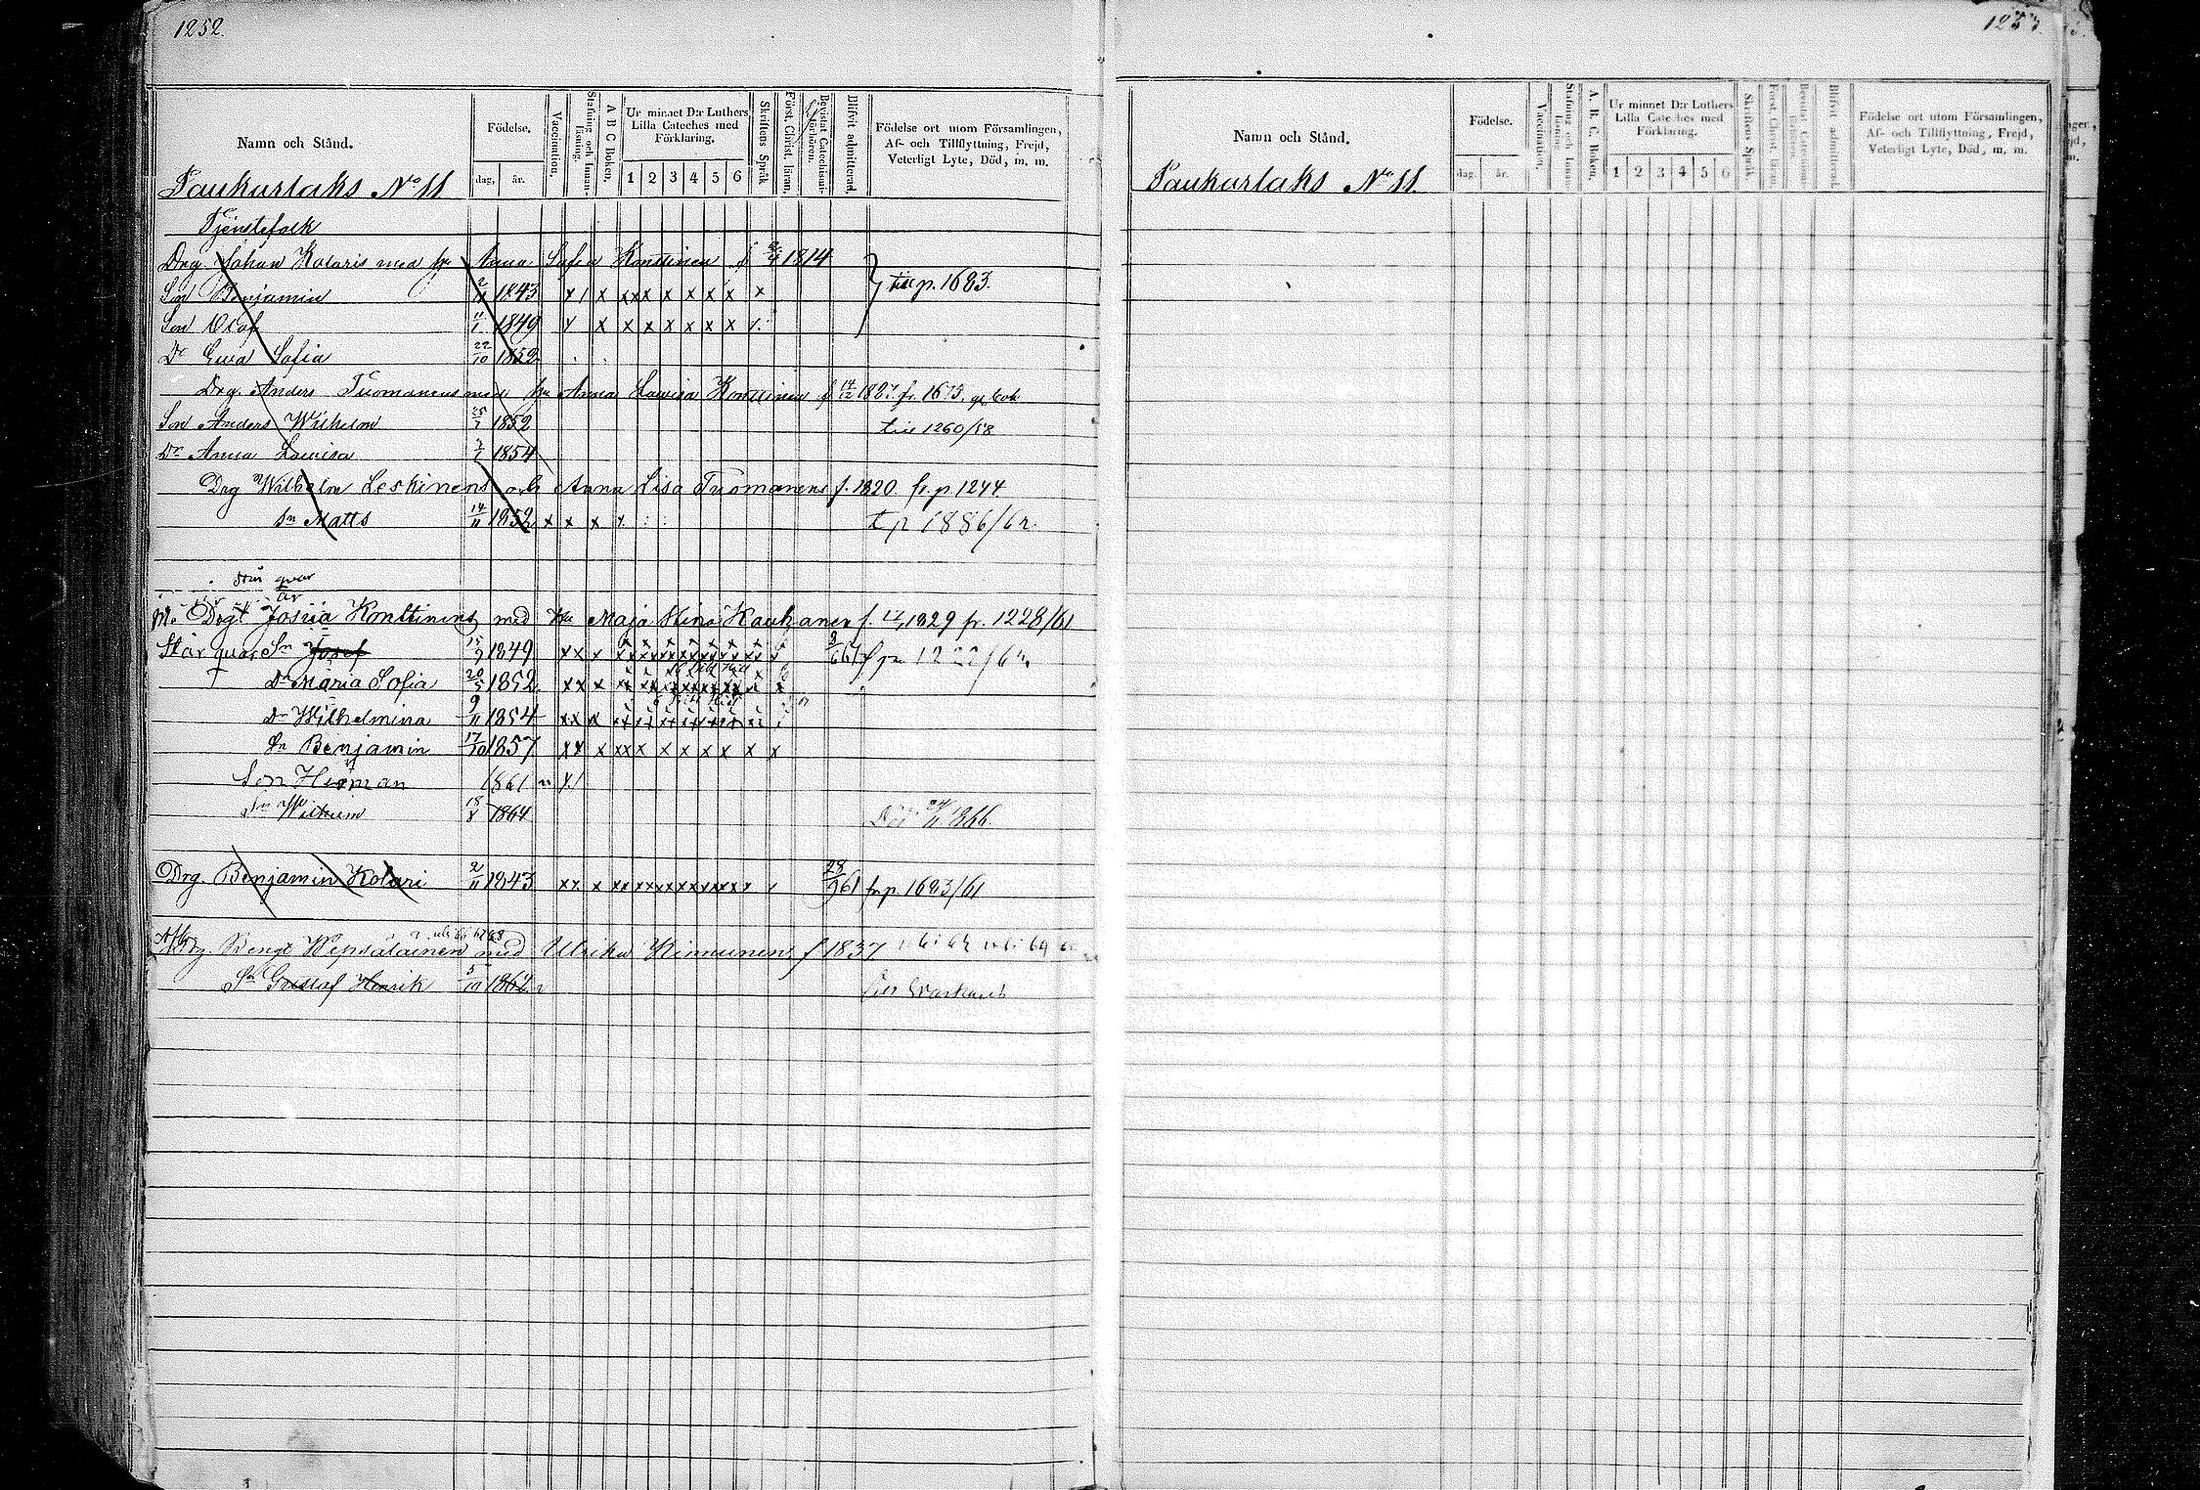 1252.
Namn och Stånd.
Födelse,
dag,
år.
Vaccination.
Stafning och Innanläsning.
A B C Boken.
Ur minnet D:r Luthers Lilla Cateches med Förklaring.
1 2 3 4 5 6
Skriftens Språk
Först. Christ. läran.
Bevistat Catechismiförhören.
Blifvit admitterad
Födelse ort utom Församlingen, Af- och Tillflyttning, Frejd, Veterligt Lyte, Död, m. m.
Paukarlaks No 11.
Tjenstefolk
Drg. Johan Kolaris med hu Anna Sofia Konttinen f 1814
Son Benjamin 2/11 1843 x / x xxx x x x x x till p. 1683.
Son Olof 11/1 1849 x x x x x x x x
Dr Ewa Sofia 22/10 1852
Drg. Anders Tuomanens med hu Anna Lowisa Konttinen f 14/12 1827. fr. 1675.
Son Anders Wilhelm 1852 till 1260/58
Dr Anna Lowisa 1854
Drg Wilhelm Leskinens Anna Lisa Tuomanens f. 1820 fr. p. 1244
Sn Matts 14/11 1852 x x x x t p 1886/62.
Står qvar
Drgt Josua Konttinens med Hu Maja Stina Kaukanen f. 1829 fr. 1228/61
Står qvar Sn Josef 15/9 1849 xx x
Dr Maria Sofia 20/5 1852 xx x
Dr Wilhelmina 9/11 1854 xx x
Sn Benjamin 17/10 1857 xx x xx x x x x x x x
Son Herman 1861
Sn Wilhelm 18/8 1864 Död 24/11 1866.
Drg. Benjamin Kolari 2/11 1843 xx x xxxxxxxxxx 28/9 61 fr p. 1683/61
Drg. Bengt Wepsäläinen med Ulrika Kinnunens f 1837
Sn Gustaf Henrik 5/10 1862
1253
Namn och Stånd.
Födelse.
dag.
år.
Vaccination.
Stafning och Innanläsning.
A. B. C. Boken.
Ur minnet D:r Luthers Lilla Cateches med Förklaring.
1 2 3 4 5 6
Skriftens Språk
Först. Christ. läran.
Blifvit admitterad.
Födelse ort utom Församlingen, Af- och Tillflyttning, Frejd, Veterligt Lyte, Död, m. m.
Paukarlaks No 11.